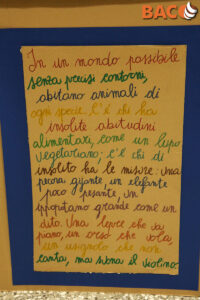 BACO
In un mondo possibile
senza precisi contorni,
abitano animali di
ogni specie. C'è chi ha
insolite abitudini
alimentari, come un lupo
vegetariano; c'è chi di
insolito ha le misure: una
pecora gigante, un elefante
poco pesante, un
ippopotamo grande come un
dito. Una lepre che va
piano, un orso che vola,
un usignolo che non
canta, ma suona il violino.